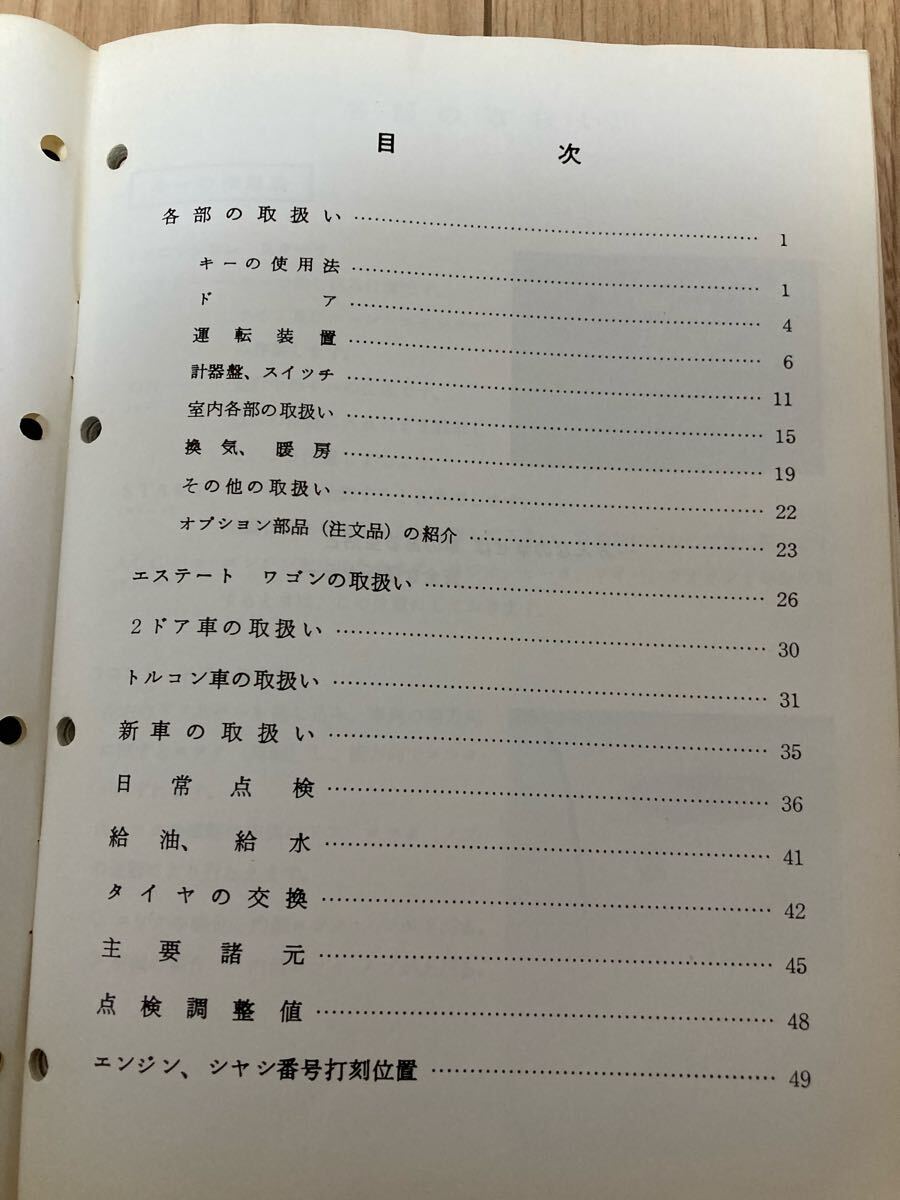 目次
各部の取扱い……1
キーの使用法……1
ドア……4
運転装置……6
計器盤、スイッチ……11
室内各部の取扱い……15
換気、暖房……19
その他の取扱い……22
オプション部品(注文品)の紹介……23
エステート ワゴンの取扱い……26
2ドア車の取扱い……30
トルコン車の取扱い……31
新車の取扱い……35
日常点検……36
給油、給水……41
タイヤの交換……42
主要諸元……45
点検調整値……48
エンジン、シヤシ番号打刻位置……49